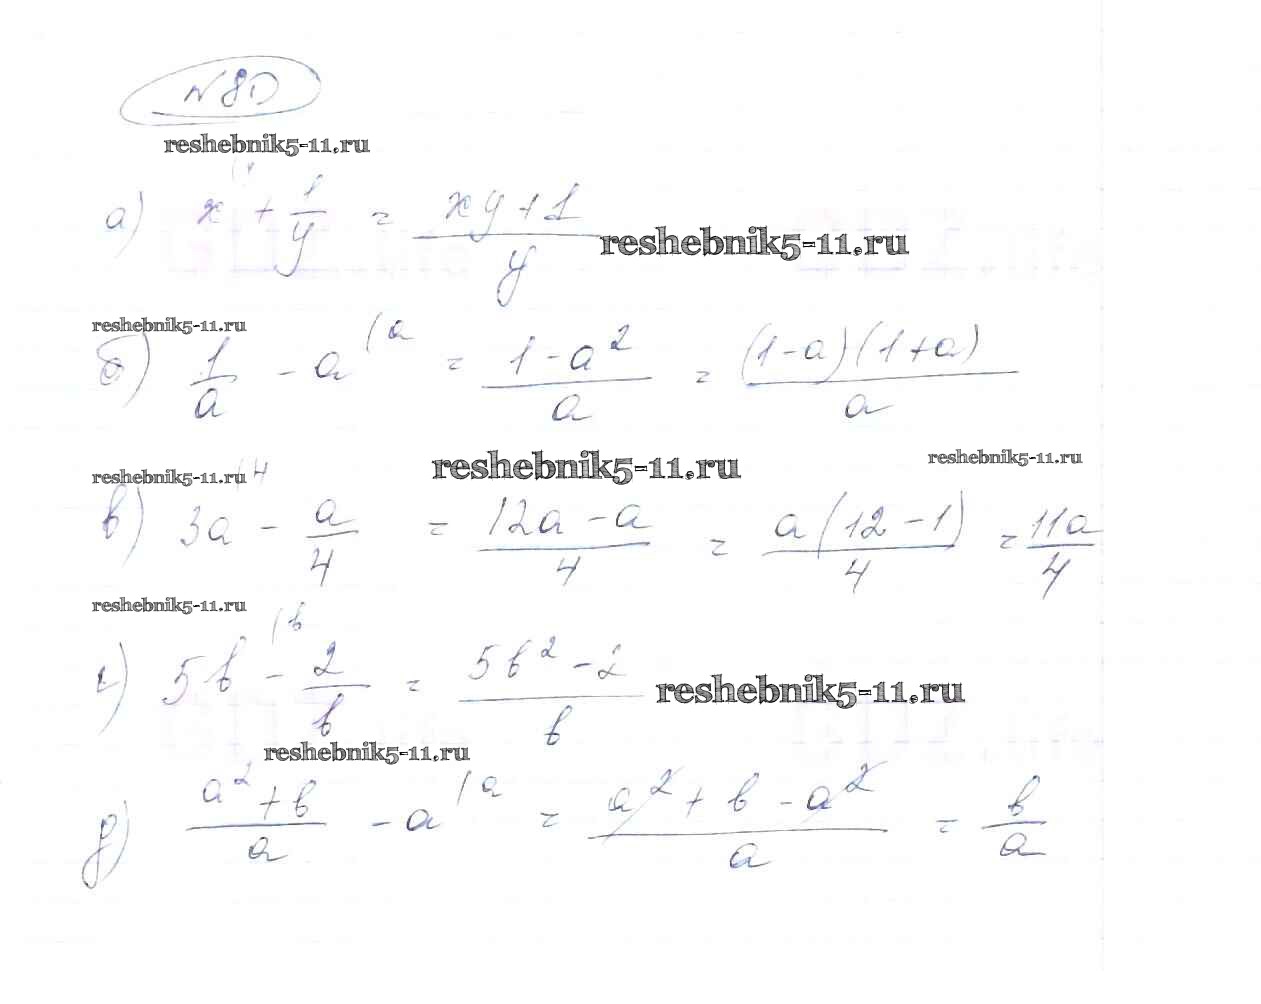 №80
reshebnik5-11.ru
а) x + 1/y = (xy+1)/y
reshebnik5-11.ru
reshebnik5-11.ru
б) 1/a - a (a = (1-a²)/a = ((1-a)(1+a))/a
reshebnik5-11.ru
reshebnik5-11.ru
reshebnik5-11.ru
(4
в) 3a - a/4 = (12a-a)/4 = (a(12-1))/4 = 11a/4
reshebnik5-11.ru
(b
г) 5b - 2/b = (5b²-2)/b
reshebnik5-11.ru
reshebnik5-11.ru
д) (a²+b)/a - a (a = (a²+b-a²)/a = b/a